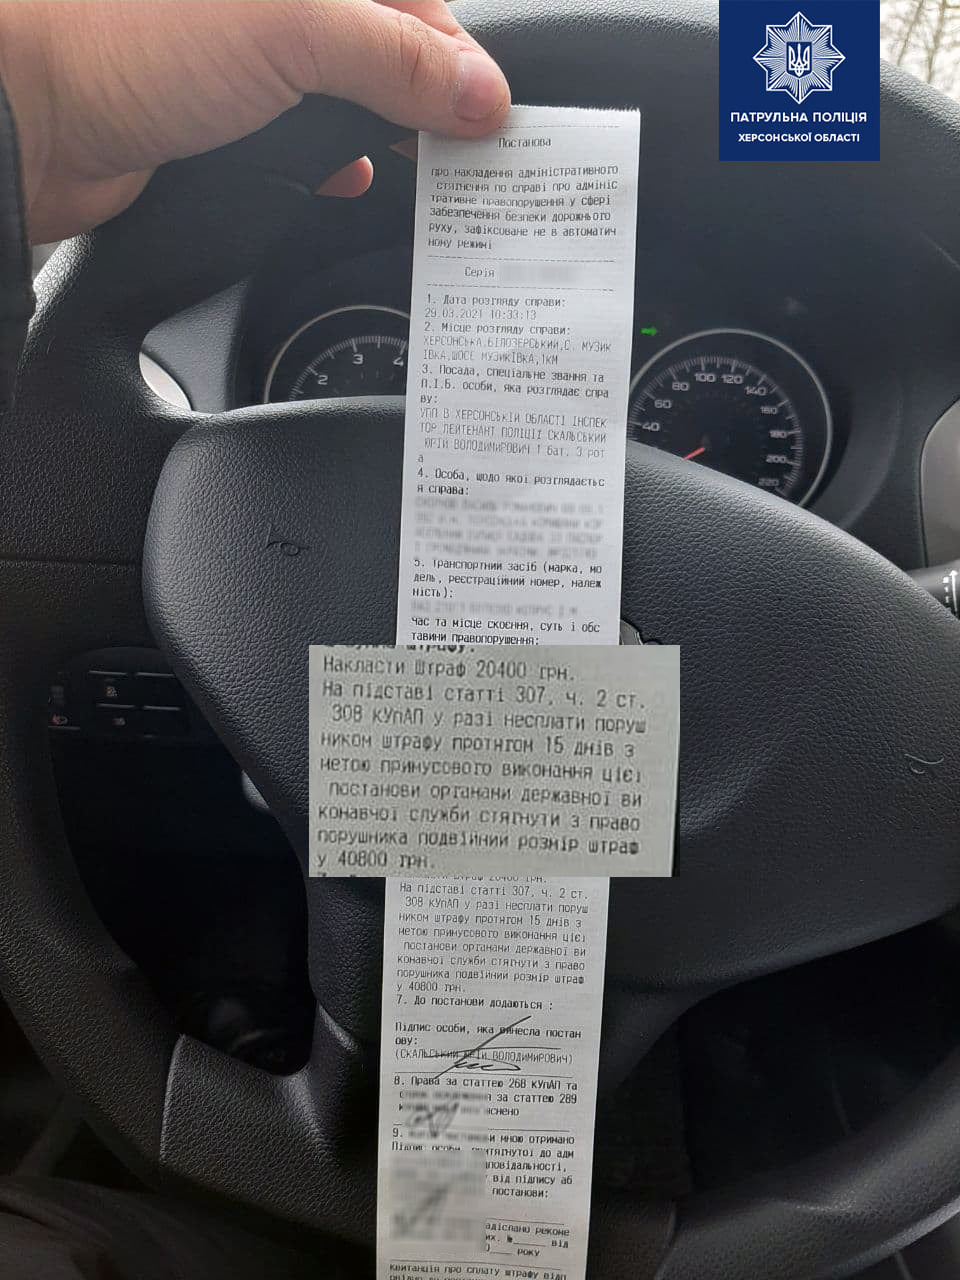 ПАТРУЛЬНА ПОЛІЦІЯ
ХЕРСОНСЬКОЇ ОБЛАСТІ
Постанова
про накладення адміністративного
стягнення по справі про адмініс
тративне правопорушення у сфері
забезпечення безпеки дорожнього
руху, зафіксоване не в автоматич
ному режимі
Серія
1. Дата розгляду справи:
29.03.2021 10:33:13
2. Місце розгляду справи:
ХЕРСОНСЬКА,БІЛОЗЕРСЬКИЙ,С. МУЗИК
ІВКА,ШОСЕ МУЗИКІВКА,1КМ
3. Посада, спеціальне звання та
П.І.Б. особи, яка розглядає спра
ву:
УПП В ХЕРСОНСЬКІЙ ОБЛАСТІ ІНСПЕК
ТОР ЛЕЙТЕНАНТ ПОЛІЦІЇ СКАЛЬСЬКИЙ
ЮРІЙ ВОЛОДИМИРОВИЧ 1 бат. 3 рот
а
4. Особа, щодо якої розглядаєтьс
я справа:
5. Транспортний засіб (марка, мо
дель, реєстраційний номер, належ
ність):
Час та місце скоєння, суть і обс
тавини правопорушення:
штрафу:
Накласти штраф 20400 грн.
На підставі статті 307, ч. 2 ст.
308 КУпАП у разі несплати поруш
ником штрафу протягом 15 днів з
метою примусового виконання цієї
постанови органами державної ви
конавчої служби стягнути з право
порушника подвійний розмір штраф
у 40800 грн.
Накласти штраф 20400 грн.
На підставі статті 307, ч. 2 ст.
308 КУпАП у разі несплати поруш
ником штрафу протягом 15 днів з
метою примусового виконання цієї
постанови органами державної ви
конавчої служби стягнути з право
порушника подвійний розмір штраф
у 40800 грн.
7. До постанови додаються :
Підпис особи, яка винесла постан
ову:
(СКАЛЬСЬКИЙ ЮРІЙ ВОЛОДИМИРОВИЧ)
8. Права за статтею 268 КУпАП та
за статтею 289
яснено
9. и мною отримано
Підпис особи, притягнутої до адм
дповідальності,
від підпису аб
постанови:
адіслано рекоме
их. №_____ від
0___ року
квитанція про сплату штрафу відп
2 3 4
40 60 80 100 120 140 160 180 200 220